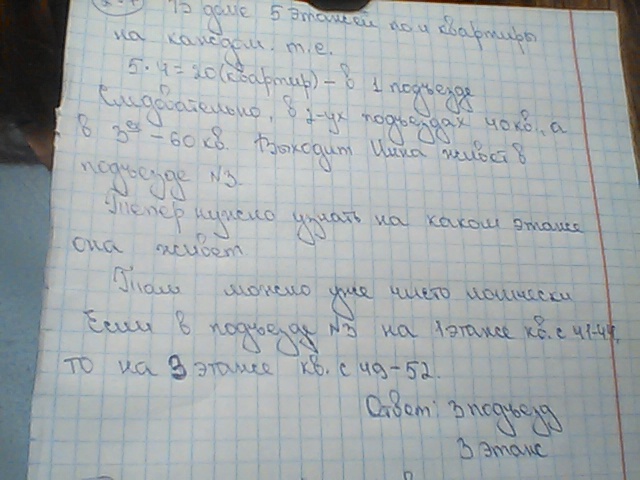 В доме 5 этажей по 4 квартиры
на каждом. т.е.
5·4=20 (квартир) – в 1 подъезде
Следовательно, в 2-ух подъездах 40 кв., а
в 3ех – 60 кв. Выходит Инна живёт в
подъезде №3.
Тепер нужно узнать на каком этаже
она живет
Там можно уже чисто логически
Если в подъезде №3 на 1 этаже кв. с 41-44,
то на 3 этаже кв. с 49-52.
Ответ: 3 подъезд
3 этаж